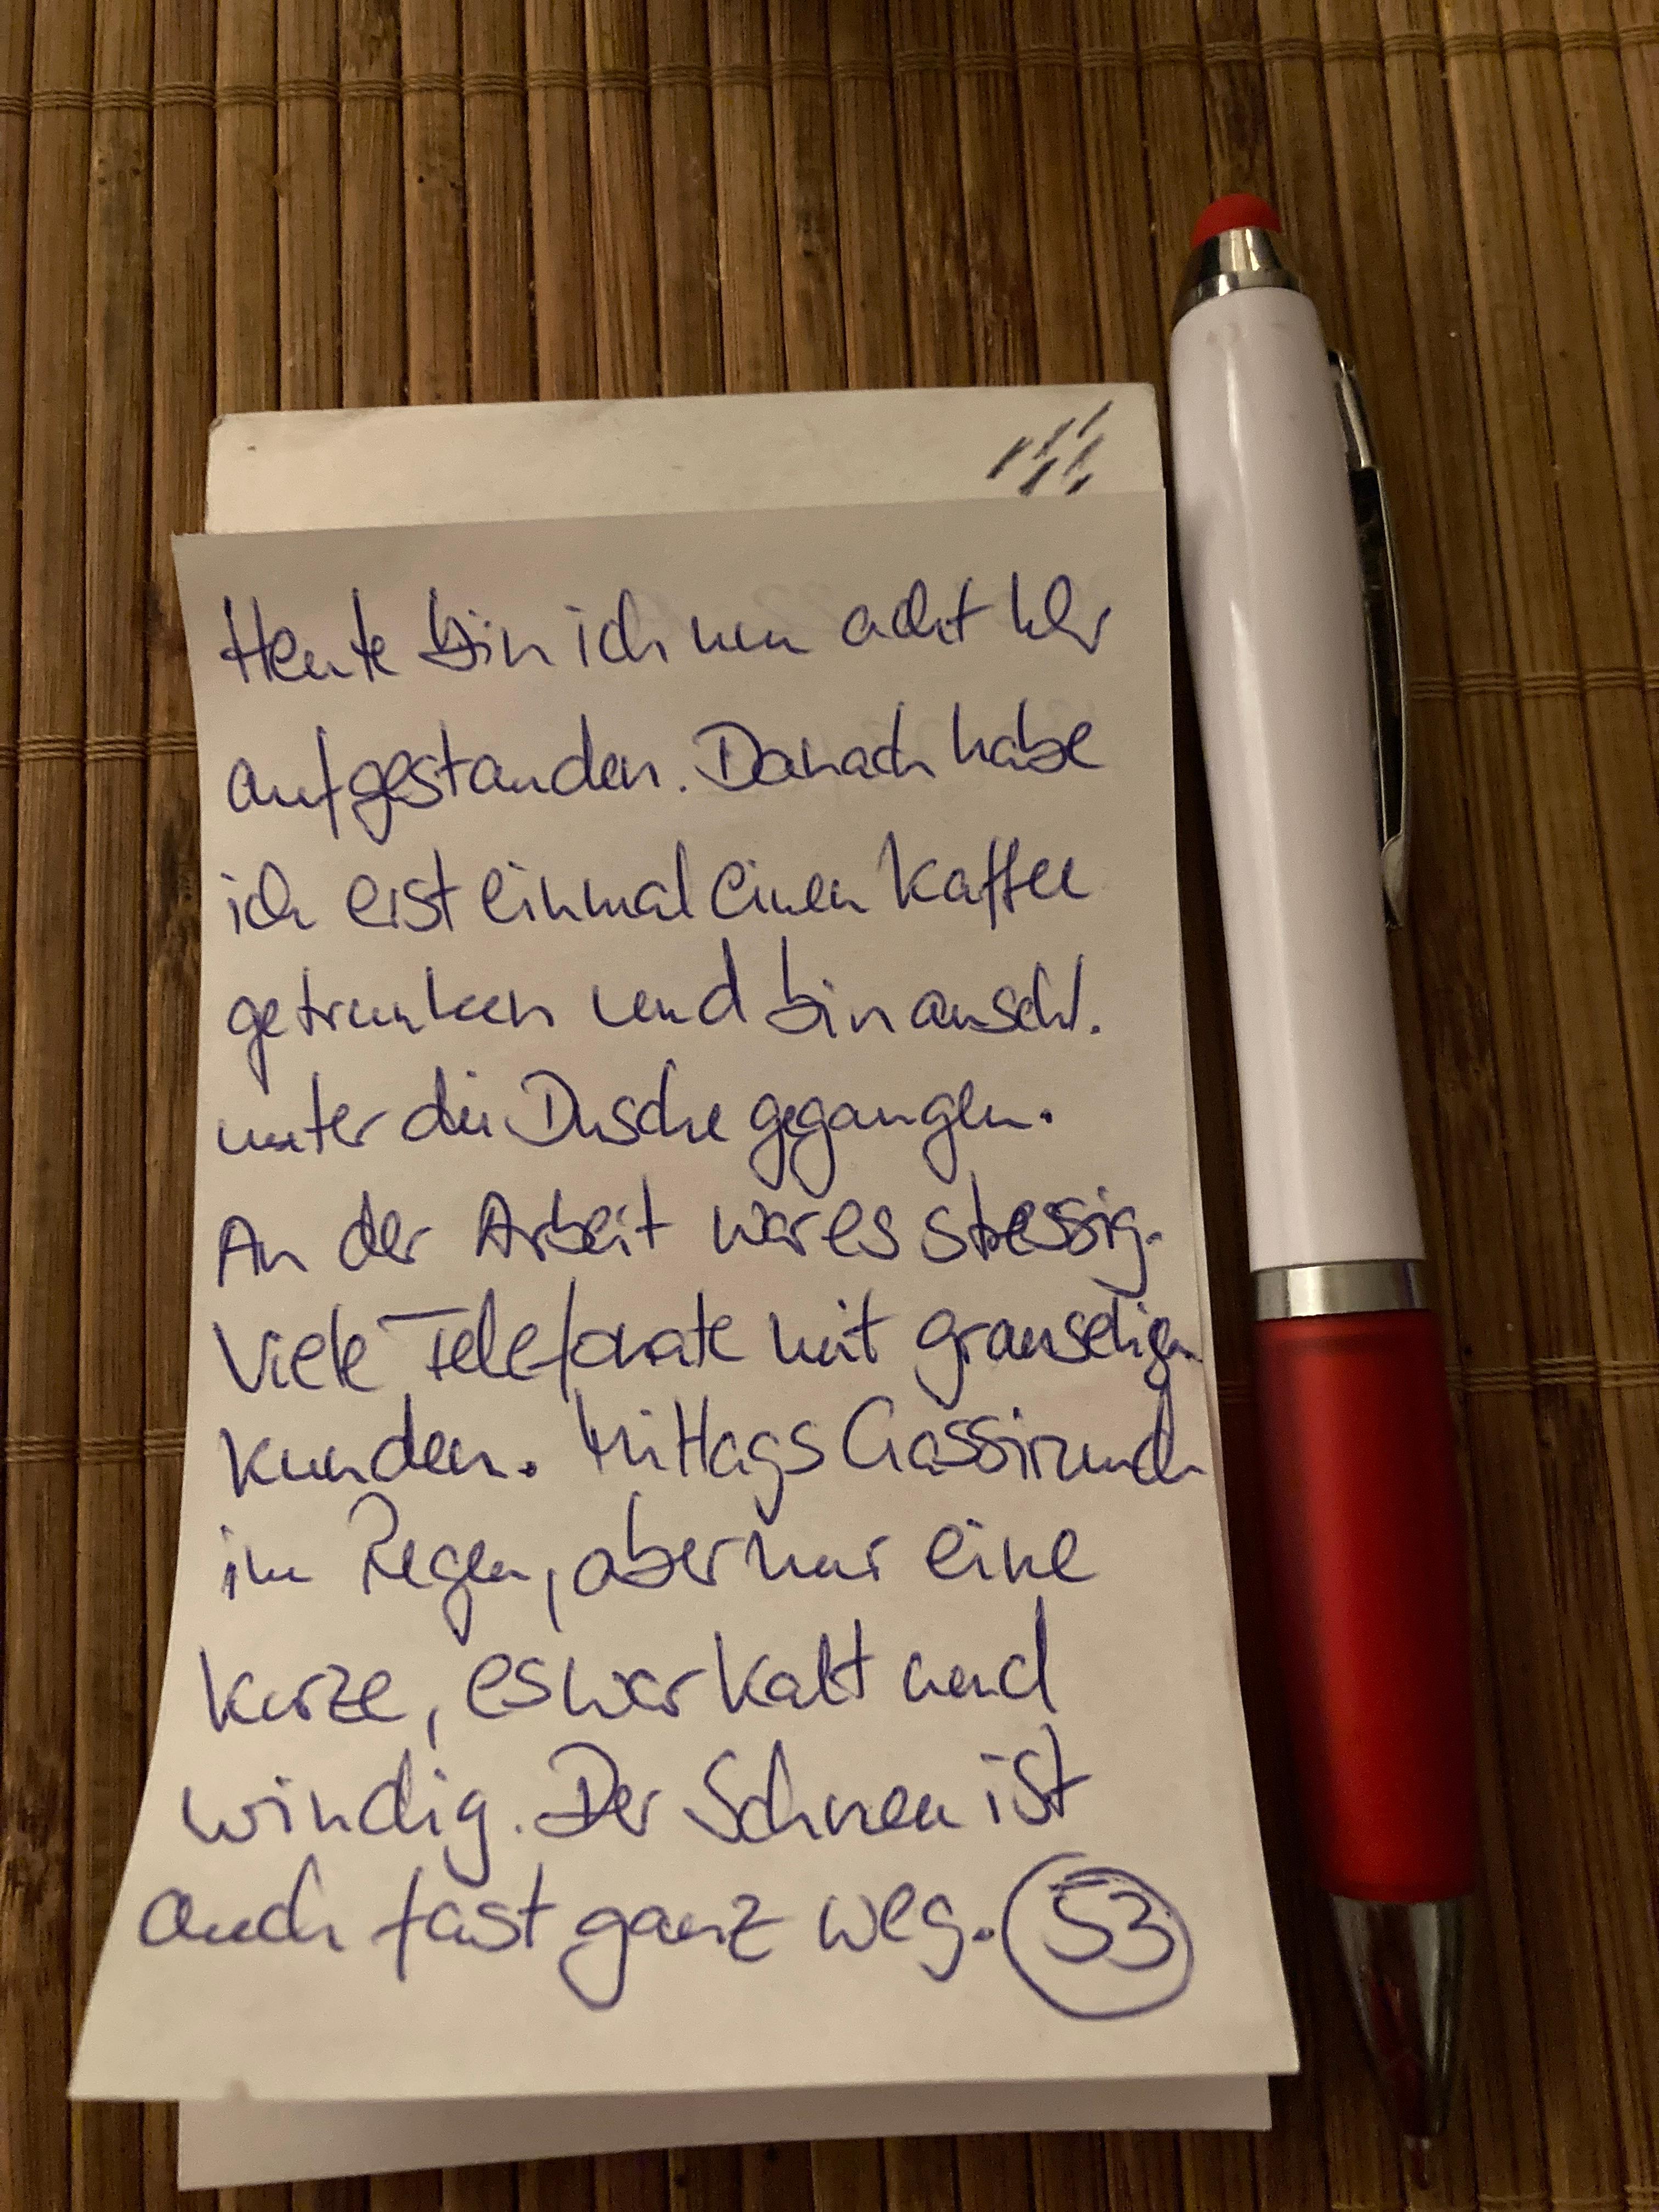 Heute bin ich um acht Uhr
aufgestanden. Danach habe
ich erst einmal einen Kaffee
getrunken und bin anschl.
unter die Dusche gegangen.
An der Arbeit war es stressig.
Viele Telefonate mit grauseligen
Kunden. Mittags Gassirunde
im Regen, aber nur eine
kurze, es war kalt und
windig. Der Schnee ist
auch fast ganz weg. 53